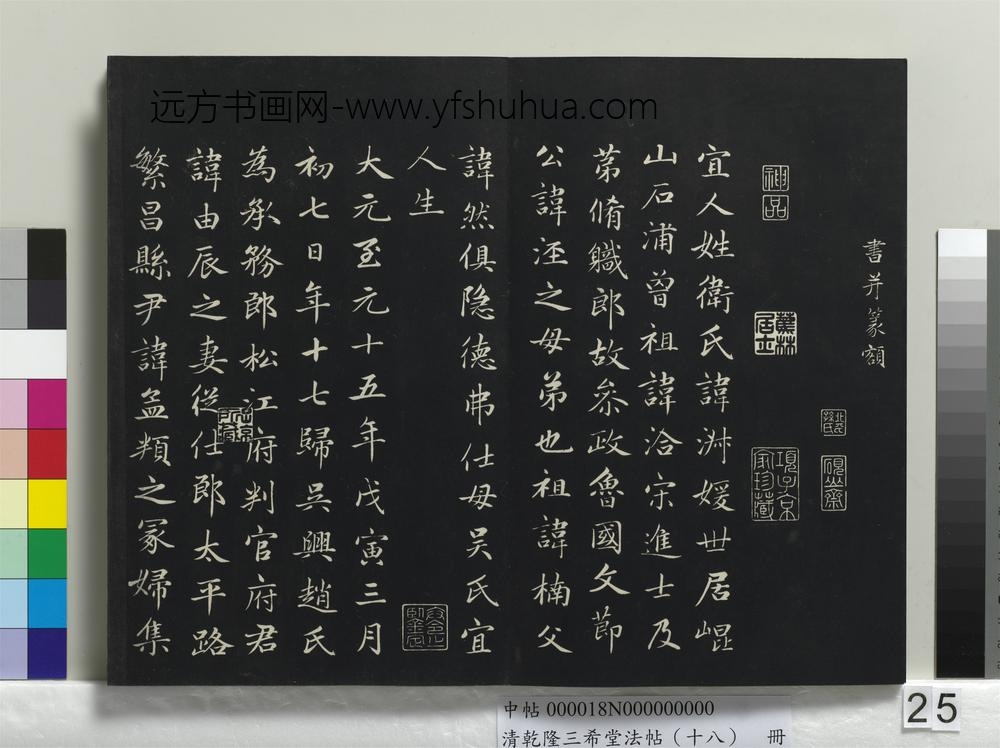 远方书画网-www.yfshuhua.com
書并篆額
神品
蕉林居士
北平孫氏
硯山齋
項子京家珍藏
宜人姓衛氏諱淑媛世居崐
山石浦曾祖諱洽宋進士及
苐脩職郎故叅政魯國文莭
公諱涇之母弟也祖諱楠父
諱然俱隐德弗仕母吴氏宜
人生
大元至元十五年戊寅三月
初七日年十七歸吴興趙氏
為承務郎松江府判官府君
諱由辰之妻從仕郎太平路
繁昌縣尹諱孟頖之冢婦集
中帖 000018N000000000
清乾隆三希堂法帖（十八） 冊
25